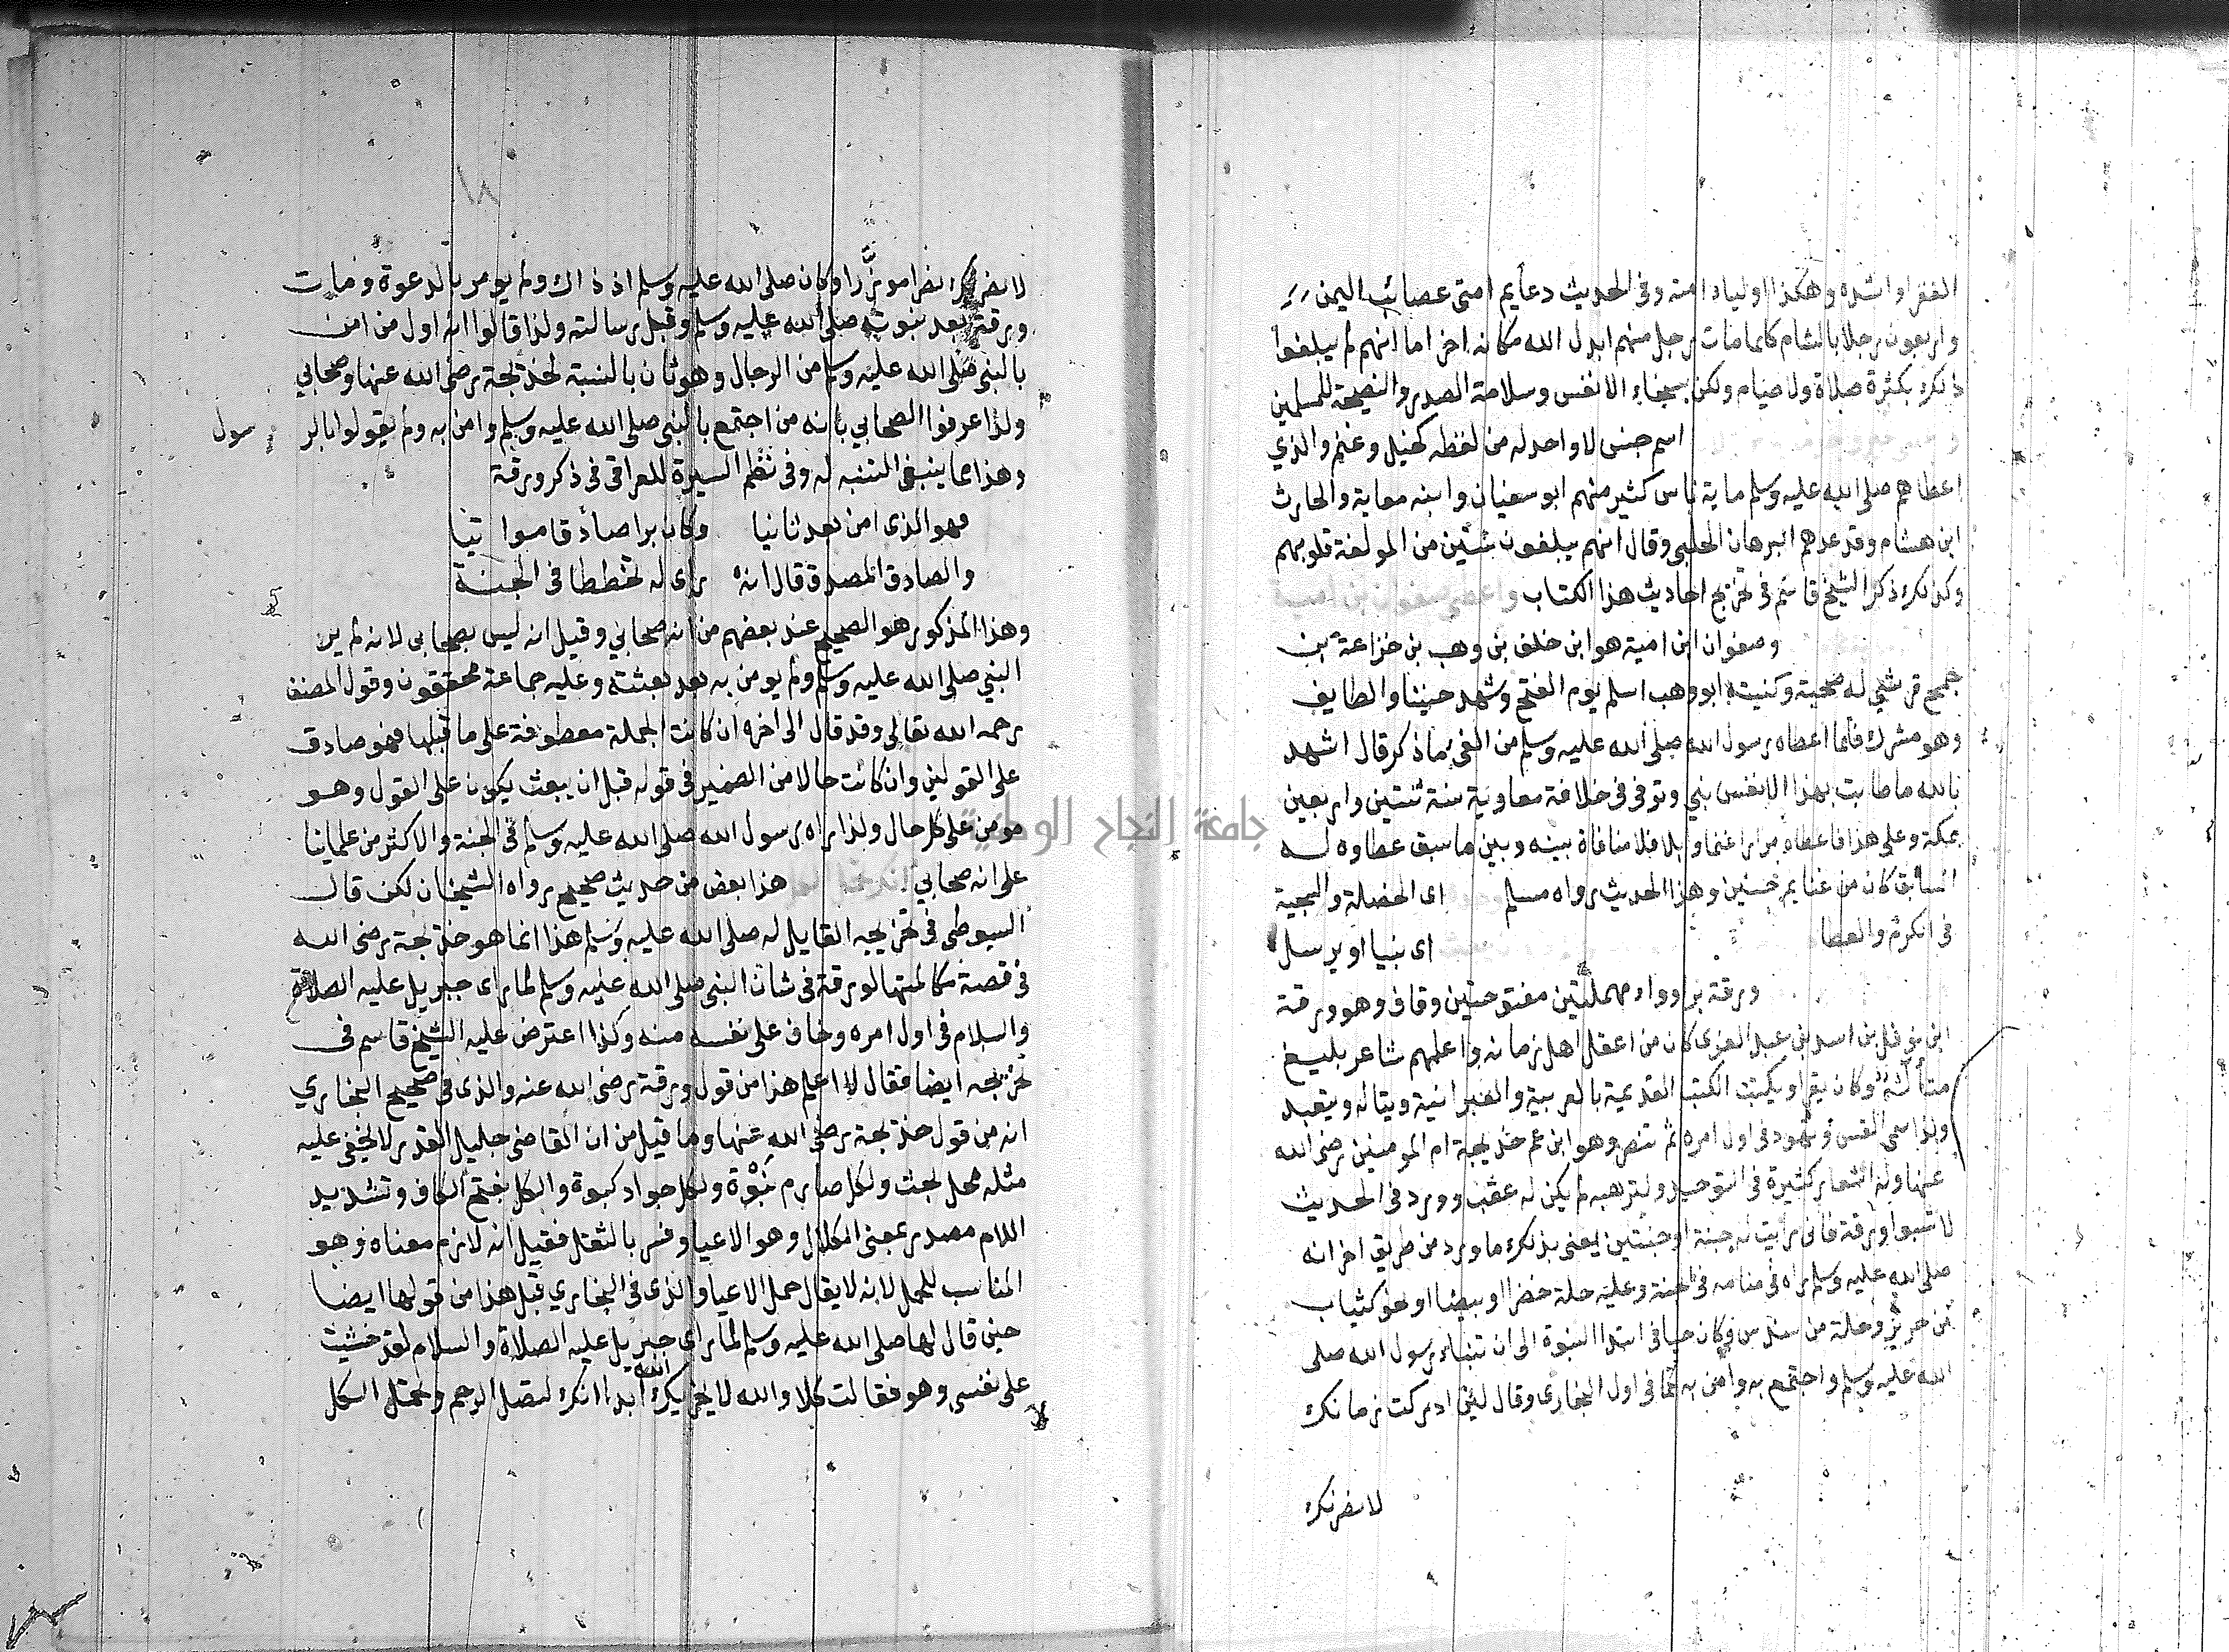 الفقر او اشده وهكذا اولياء امته وفي الحديث دعايم امتي عصائب اليمن
واربعون رجلا بالشام كلما مات رجل منهم ابدل الله مكانه اخر اما انهم لم يبلغوا
ذلك بكثرة صلاة ولا صيام ولكن بسخاء الانفس وسلامة الصدر والنصيحة للمسلمين
اسم جنس لا واحد له من لفظه كخيل وغنم والذي
اعطاهم صلى الله عليه وسلم ماية ناس كثير منهم ابو سفيان وابنه معاية والحارث
ابن هشام وقد عدهم البرهان الحلبي وقال انهم يبلغون ستين من المولفة قلوبهم
وكذلك ذكر الشيخ قاسم في تخريج احاديث هذا الكتاب واعطى صفوان بن امية
وصفوان ابن امية هو ابن خلف بن وهب بن خزاعة بن
جمح قرشي له صحبة وكنيته ابو وهب اسلم يوم الفتح وشهد حنينا والطايف
وهو مشرك فلما اعطاه رسول الله صلى الله عليه وسلم من الفي ما ذكر قال اشهد
بالله ما طابت بهذا الا نفس نبي وتوفي في خلافة معاوية سنة ثنتين واربعين
بمكة وعلى هذا فاعطاه مرارا غنما وابلا فلا منافاة بينه وبين ما سبق عطاوه له
السابق كان من غنايم حنين وهذا الحديث رواه مسلم اى الخصلة والسجية
في الكرم والعطا اى نبيا او يرسل
ورقة براء وواو مهملتين مفتوحتين وقاف وهو ورقة
ابن نوفل بن اسد بن عبد العزى كان من اعقل اهل زمانه واعلمهم شاعر بليغ
متأله وكان يقرا ويكتب الكتب القديمة بالعربية والعبرانية ويتاله ويتعبد
ولذا سمي القس وتهود في اول امره ثم تنصر وهو ابن عم خديجة ام المومنين رضى الله
عنها وله اشعار كثيرة في التوحيد ولترهبه لم يكن له عقب وورد في الحديث
لا تسبوا ورقة فانى رايت له جنة او جنتين يعنى بذلك ما ورد من طريق اخر انه
صلى الله عليه وسلم راه في منامه في الجنة وعليه حلة خضرا او بيضا او نحو كثياب
من حرير وحلة من سندس وكان حيا في ابتدا النبوة الى ان تنباء رسول الله صلى
الله عليه وسلم واجتمع به وامن به كما في اول البخارى وقال لئن ادركت زمانك
لانصرنك
لانصرنك نصرا موزَّرا وكان صلى الله عليه وسلم اذ ذاك ولم يومر بالدعوة ومات
ورقة بعد نبوته صلى الله عليه وسلم وقبل رسالته ولذا قالوا انه اول من امن
بالنبي صلى الله عليه وسلم من الرجال وهو ثان بالنسبة لخديجة رضى الله عنها وصحابي
ولذا عرفوا الصحابي بانه من اجتمع بالنبي صلى الله عليه وسلم وامن به ولم يقولوا بالر سول
وهذا مما ينبغي التنبه له وفي نظم السيرة للعراقي في ذكر ورقة
فهو الذى امن بعد ثانيا وكان برا صادقا مواتيا
والصادق المصدوق قال انه راى له تخططا في الجنة
وهذا المذكور هو الصحيح عند بعضهم من انه صحابي وقيل انه ليس بصحابي لانه لم ير
النبي صلى الله عليه وسلم ولم يومن به بعد بعثته وعليه جماعة محققون وقول المصنف
رحمه الله تعالى وقد قال الى اخره ان كانت الجملة معطوفة على ما قبلها فهو صادق
على القولين وان كانت حالا من الضمير في قوله قبل ان يبعث يكون على القول وهو
مومن على كل حال ولذا راه رسول الله صلى الله عليه وسلم في الجنة والاكثر من علماينا
على انه صحابي هذا بعض من حديث صحيح رواه الشيخان لكن قال
السيوطي في تخريجه القايل له صلى الله عليه وسلم هذا انما هو خديجة رضى الله
في قصة مكالمتها لورقة في شان النبي صلى الله عليه وسلم لما راى جبريل عليه الصلاة
والسلام في اول امره وخاف على نفسه منه وكذا اعترض عليه الشيخ قاسم في
تخريجه ايضا فقال لا اعلم هذا من قول ورقة رضى الله عنه والذى في صحيح البخاري
انه من قول خديجة رضى الله عنها وما قيل من ان القاضى جليل القدر لا يخفى عليه
مثله محل بحث ولكل صارم نَبْوَة ولكل جواد كبوة والكل بفتح الكاف وتشديد
اللام مصدر بمعنى الكلال وهو الاعيا وفسر بالثقل فقيل انه لازم معناه وهو
المناسب للحمل لانه لا يقال حمل الاعيا والذى في البخاري قبل هذا من قولها ايضا
حين قال لها صلى الله عليه وسلم لما راى جبريل عليه الصلاة والسلام لقد خشيت
على نفسي وهو فقالت كلا والله لا يخزيك الله ابدا انك لتصل الرحم وتحمل الكل
جامعة النجاح الوطنية